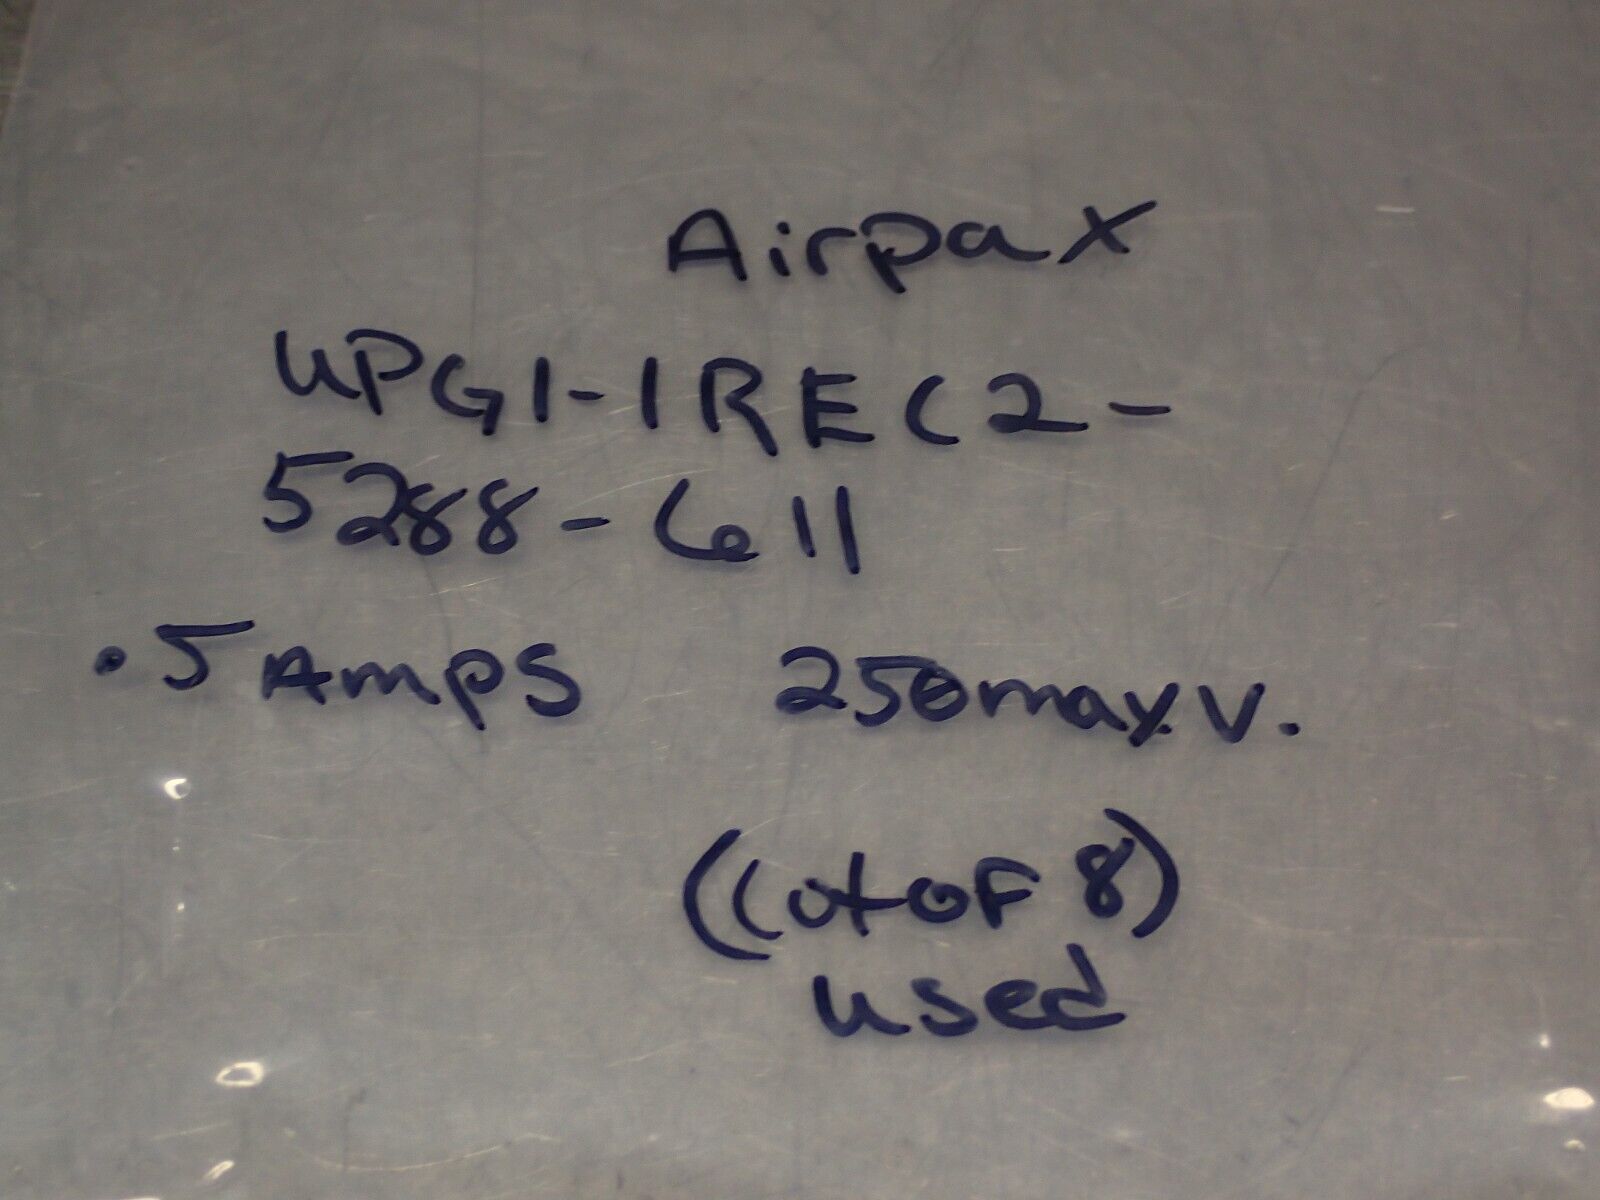 Airpax
UPG1-1REC2-
5288-611
.5 Amps 250 max. V.
(Lot of 8)
used